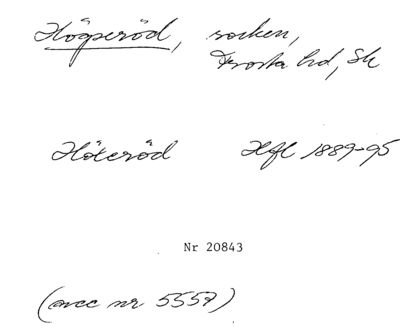 Högseröd, socken,
Frosta hd, Sk
Högseröd Hfl 1889-95
Nr 20843
(acc nr 5557)